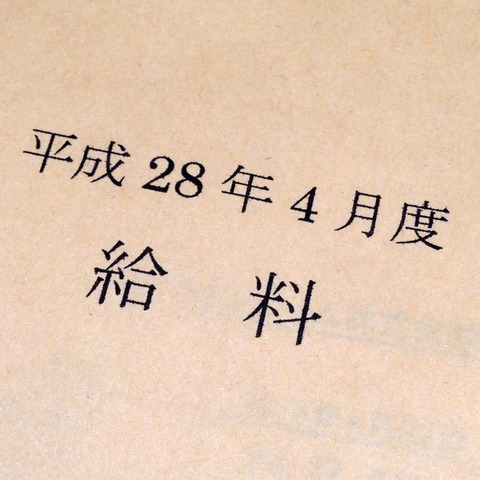 平成 28 年 4 月度
給 料